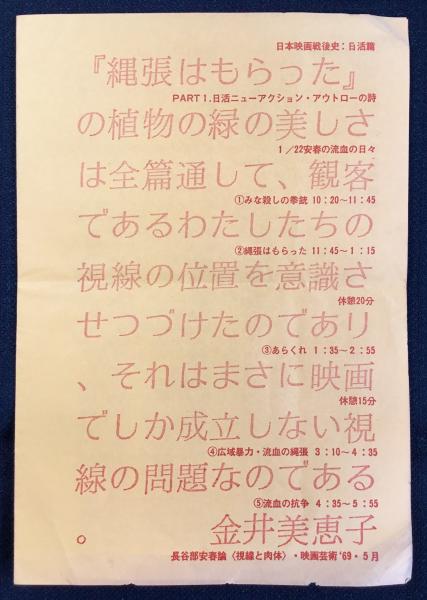 日本映画戦後史：日活篇
『縄張はもらった』
PART 1.日活ニューアクション・アウトローの詩
の植物の緑の美しさ
1／22安春の流血の日々
は全篇通して、観客
①みな殺しの拳銃 10:20〜11:45
であるわたしたちの
②縄張はもらった 11:45〜1:15
視線の位置を意識さ
休憩20分
せつづけたのであり
③あらくれ 1:35〜2:55
、それはまさに映画
休憩15分
でしか成立しない視
④広域暴力・流血の縄張 3:10〜4:35
線の問題なのである
⑤流血の抗争 4:35〜5:55
。金井美恵子
長谷部安春論〈視線と肉体〉・映画芸術'69・5月